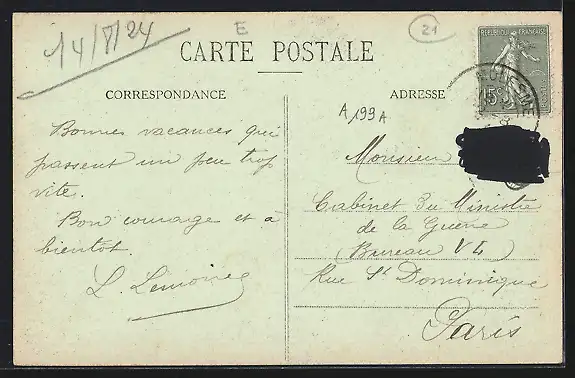 14/8/24
E
21
CARTE POSTALE
REPUBLIQUE FRANÇAISE
15c
CORRESPONDANCE
ADRESSE
A 199 A
Bonnes vacances qui
passent un peu trop
vite.
Bon courage et à
bientot.
L. Lemoine
Monsieur
Cabinet du Ministre
de la Guerre
(Bureau V4)
Rue St Dominique
Paris